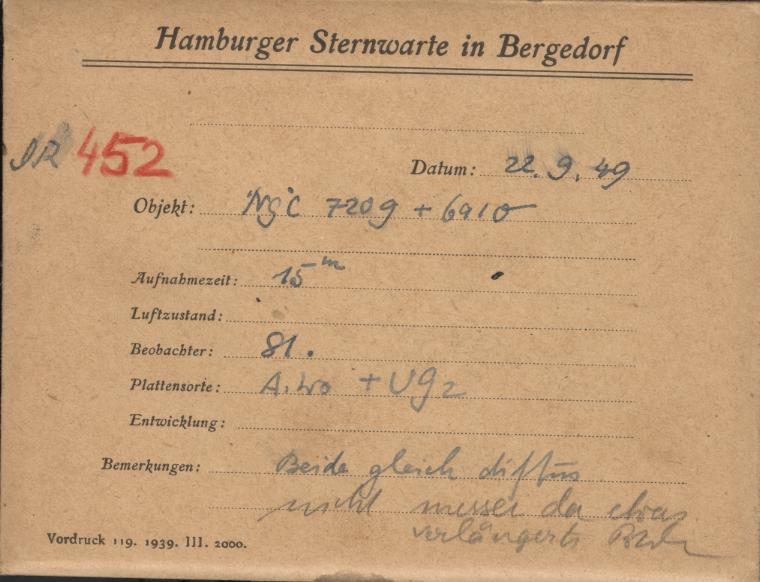 Hamburger Sternwarte in Bergedorf
452
Datum: 22. 9. 49
Objekt: NGC 7209 + 6910
Aufnahmezeit: 15 m
Luftzustand:
Beobachter:
Plattensorte: + UG2
Entwicklung:
Bemerkungen: Beide gleich diffus
nicht messen da etwas
verlängerte
Vordruck 119. 1939. III. 2000.